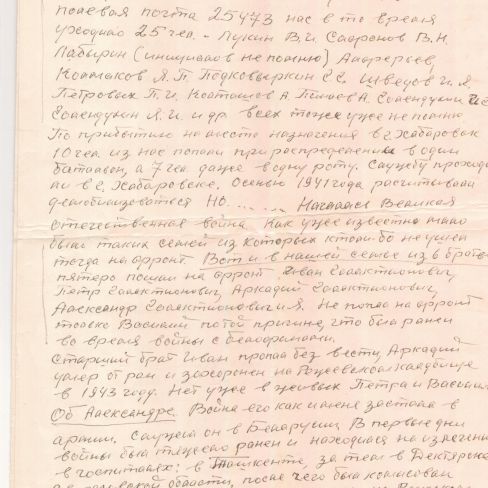 полевая почта 25473 нас в то время
уходило 25 чел. - Лукин В.И. Сафронов В.Н.
Лабырин (инициалов не помню) Андреев,
Колмаков Я.П. Подковыркин С.С. Шведов И.Я.
Петровых П.И. Колташов А.
и др всех тоже уже не помню.
По прибытию на место назначения в г. Хабаровск
10 чел. из нас попали при распределении в один
батальон, а 7 чел. даже в одну роту. Службу проходи
ли в г. Хабаровске. Осенью 1941 года расчитывали
демобилизоваться Но....... Началась Великая
отечественная война. Как уже известно мало
было таких семей из которых кто либо не ушел
тогда на фронт. Вот и в нашей семье из 6 братов
пятеро пошли на фронт. Иван Галактионович,
Петр Галактионович, Аркадий Галактионович,
Александр Галактионович и Я. Не попал на фронт
только Василий по той причине, что был ранен
во время войны с белофинами.
Старший брат Иван пропал без вести, Аркадий
умер от ран и захоронен на кладбище
в 1943 году. Нет уже в живых Петра и Василия
Об Александре. Война его как и меня застала в
армии. Служил он в Беларусии. В первые дни
войны был тяжело ранен и находился на излечении
в госпиталях: в Ташкенте, за тем в Дегтярске
области, после чего был комисован